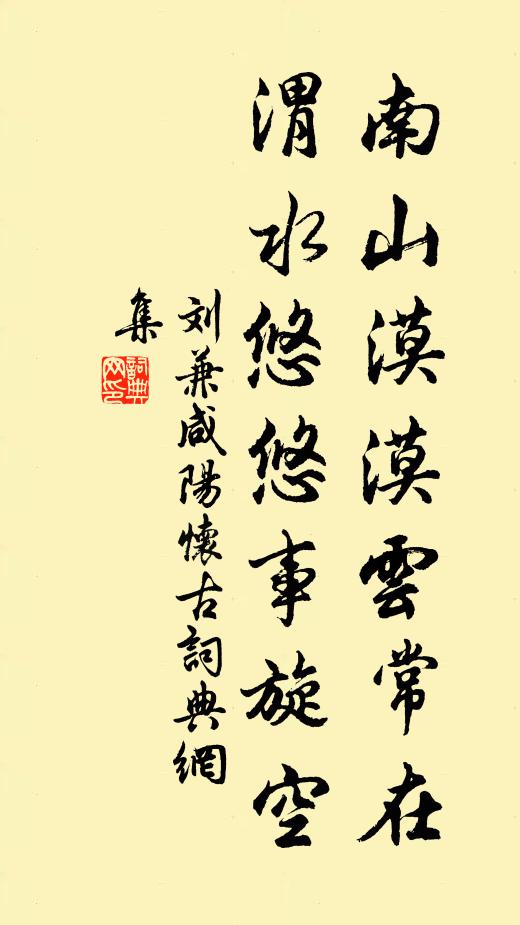 南山漠漠雲常在
渭水悠悠事旋空
刘兼咸陽懷古詞典網
集
詞典
网印